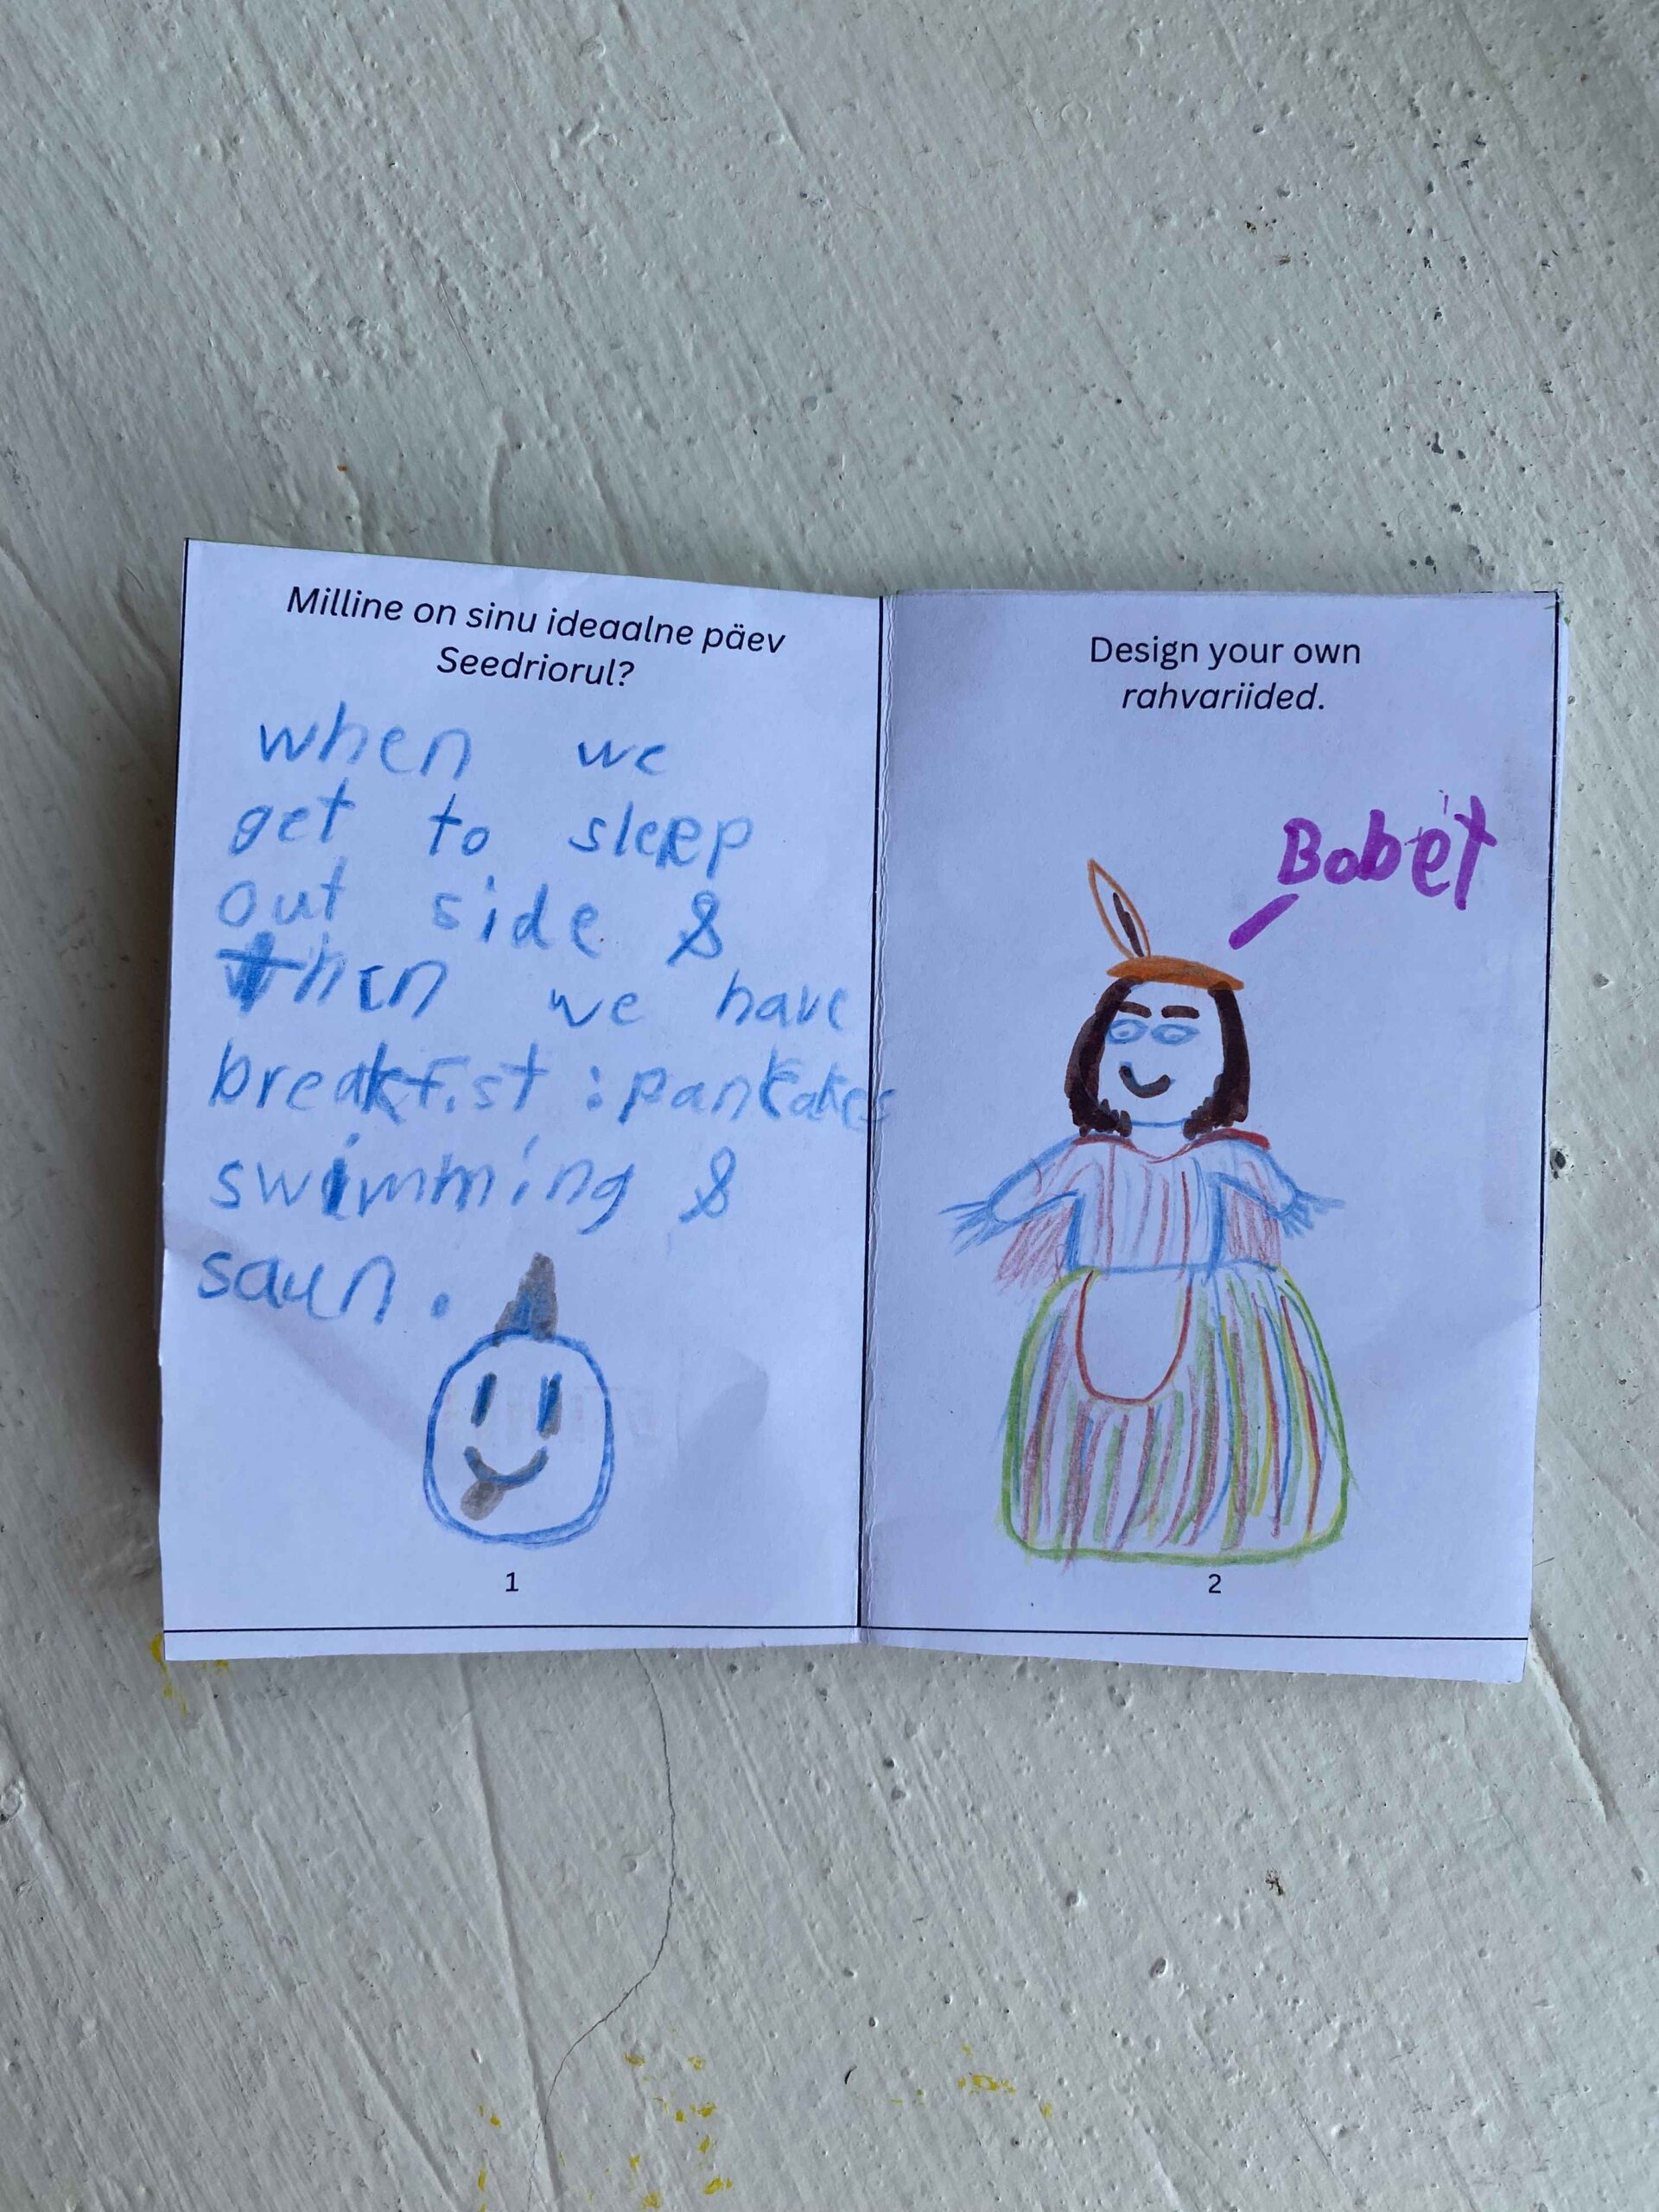 Milline on sinu ideaalne päev
Seedriorul?
when we
get to sleep
out side &
then we have
breakfist : pankakes
swimming &
saun.
1
Design your own
rahvariided.
Bobet
2